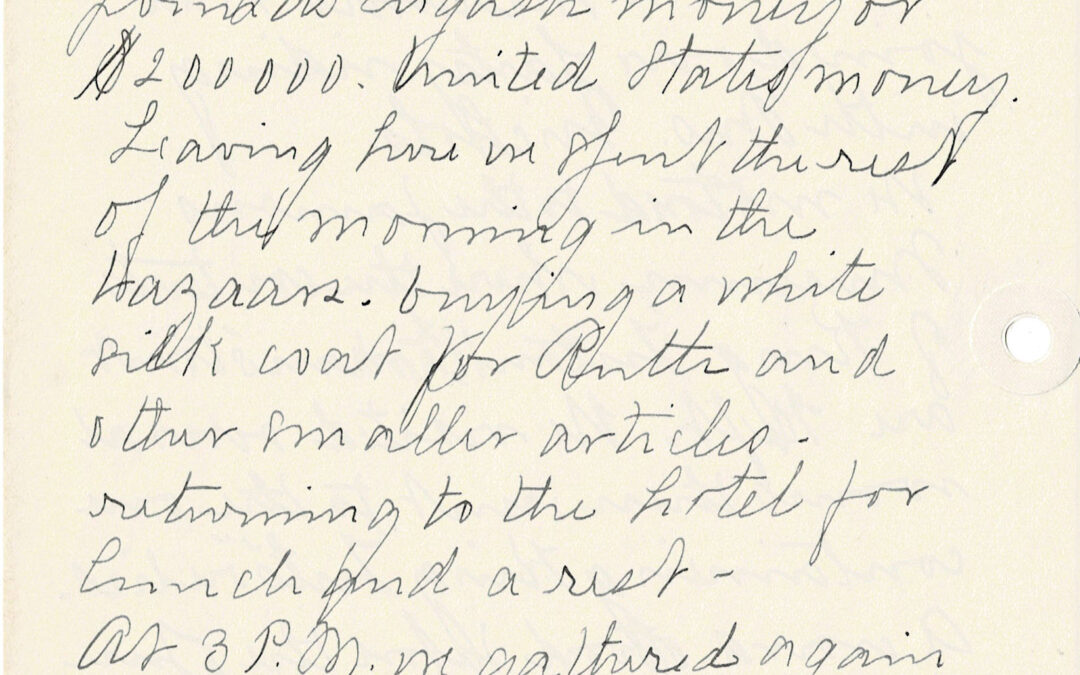 pounds English money or
$200000. United States money.
Leaving here we spent the rest
of the morning in the
bazaars. buying a white
silk coat for Ruth and
other smaller articles -
returning to the hotel for
lunch and a rest -
At 3 P.M. we gathered again